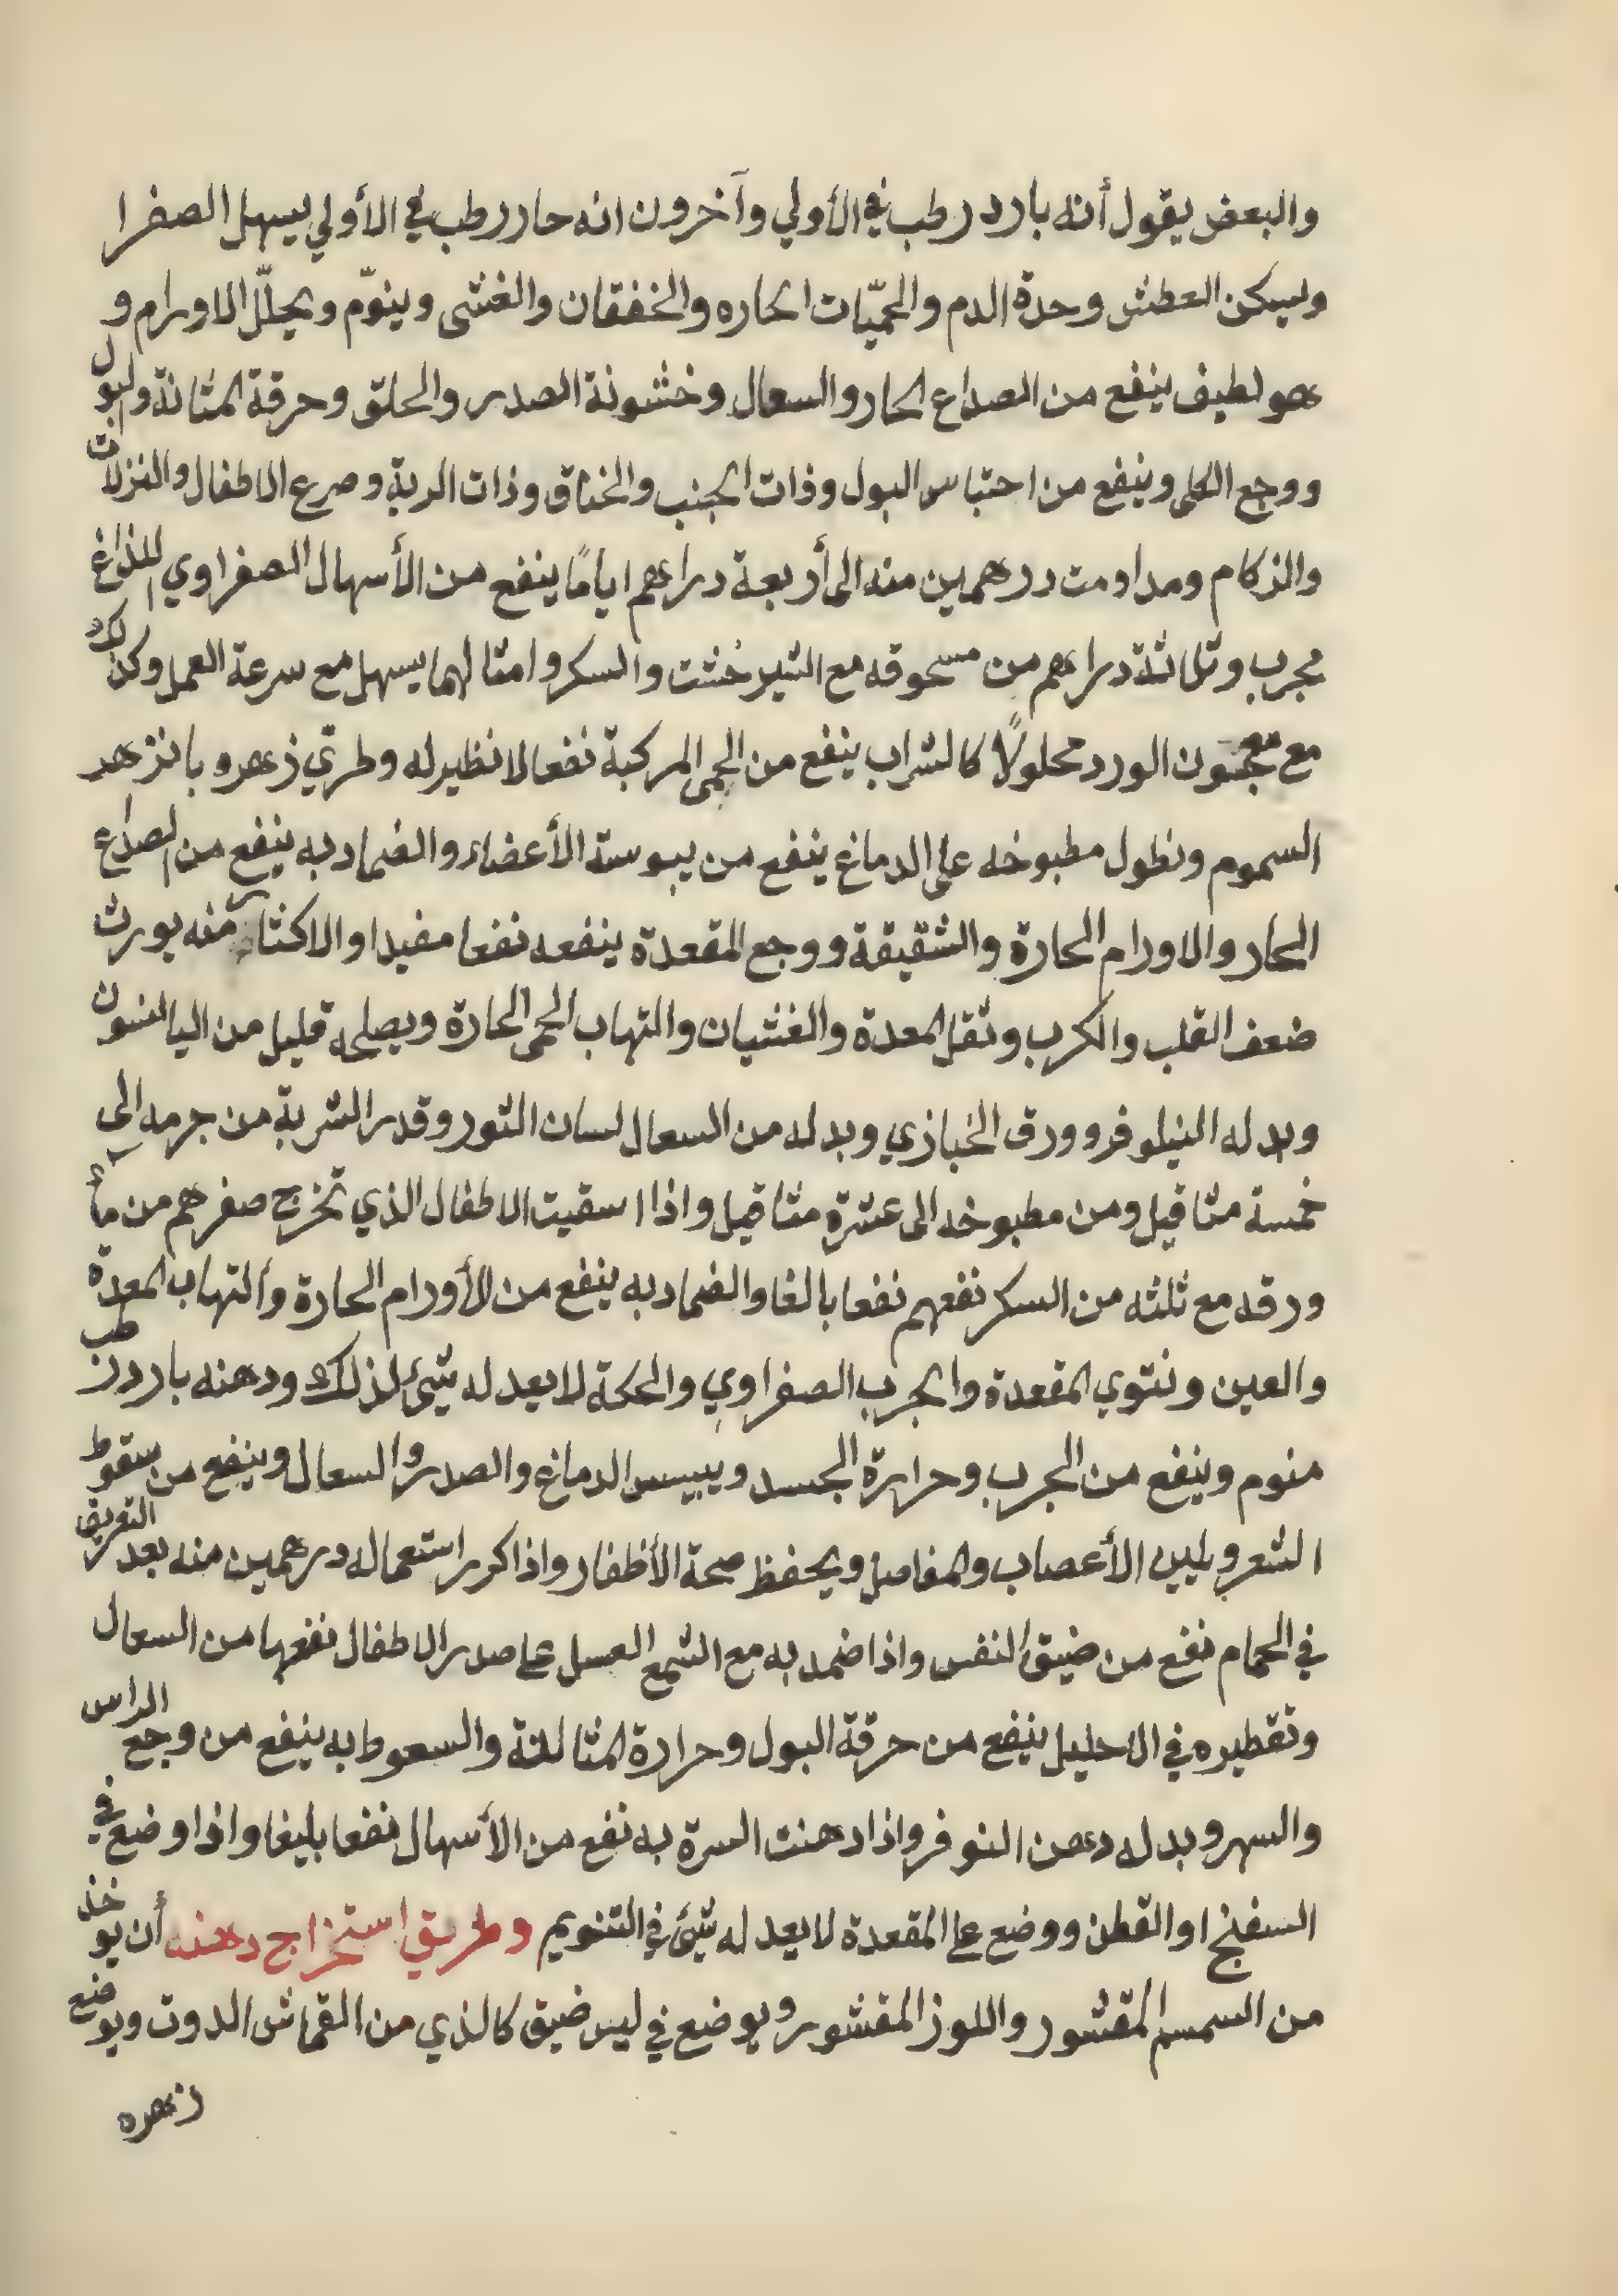 والبعض يقول أنه بارد رطب في الأولي وآخرون انه حار رطب في الأولي يسهل الصفرا
ويسكن العطش وحدة الدم والحمّيات الحاره والخفقان والغشى وينوّم ويحلّل الاورام و
هو لطيف ينفع من الصداع الحار والسعال وخشونة الصدر والحلق وحرقة المثانة والبول
ووجع الكلى وينفع من احتباس البول وذات الجنب والخناق وذات الرية وصرع الاطفال والنزلات
والزكام ومداومت درهمين منه الى أربعة دراهم اياماً ينفع من الأسهال الصفراوي اللذاغ
مجرب وثلاثة دراهم من مسحوقه مع الشيرخشت والسكر وامثالهما يسهل مع سرعة العمل وكذلك
مع معجون الورد محلولاً كالشراب ينفع من الحمى المركبة نفعا لا نظير له وطري زهره بانزهر
السموم ونطول مطبوخه على الدماغ ينفع من يبوسة الأعضاء والضماد به ينفع من الصداع
الحار والاورام الحارة والشقيقة ووجع المقعدة ينفعه نفعا مفيدا والاكثار منه يورث
ضعف القلب والكرب وثقل المعدة والغثيان والتهاب الحمى الحارة ويصلحه قليل من اليانسون
وبدله النيلوفر وورق الخبازي وبدله من السعال لسان الثور وقدر الشربة من جرمه الى
خمسة مثاقيل ومن مطبوخه الى عشرة مثاقيل واذا اسقيت الاطفال الذي تخرج صفرهم من مآء
ورقه مع ثلثه من السكر نفعهم نفعا بالغا والضماد به ينفع من الأورام الحارة والتهاب المعدة
والعين ونتوي المقعدة والجرب الصفراوي والحكة لا يعدله شيئ لذلك ودهنه بارد رطب
منوم وينفع من الجرب وحرارة الجسد ويبيس الدماغ والصدر والسعال وينفع من سقوط
الشعر ويلين الأعصاب والمفاصل ويحفظ صحة الأظفار واذا كرر استعماله درهمين منه بعد التعريق
في الحمام نفع من ضيق النفس واذا ضمد به مع الشمع العسل على صدر الاطفال نفعها من السعال
وتقطيره في الاحليل ينفع من حرقة البول وحرارة المثالنة والسعوط به ينفع من وجع الراس
والسهر وبدله دهن النوفر واذا دهنت السرة به نفع من الأسهال نفعا بليغا واذا وضع في
السفنج او القطن ووضع على المقعدة لا يعدله شيئ في التنويم وطريق استخراج دهنه أن يوخذ
من السمسم المقشور واللوز المقشور ويوضع في ليس ضيق كالذي من القماش الدوت ويوضع
زهره